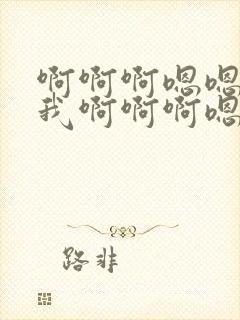 啊啊啊嗯嗯
我啊啊啊嗯
路非